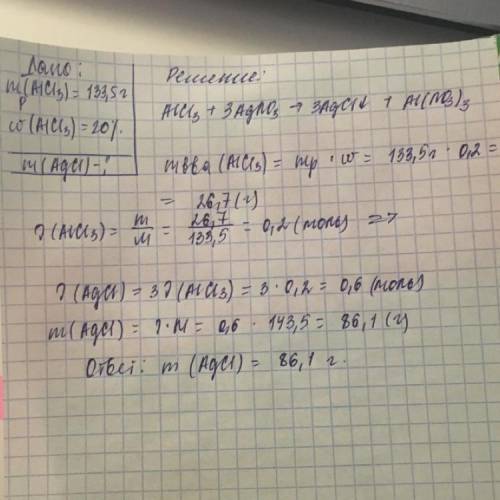 Дано:
mр(AlCl3) = 133,5 г
w(AlCl3) = 20%.
m(AgCl) - ?
Решение:
AlCl3 + 3AgNO3 → 3AgCl↓ + Al(NO3)3
mв-ва (AlCl3) = mр · w = 133,5 г · 0,2 =
= 26,7 (г)
ν(AlCl3) = m/M = 26,7/133,5 = 0,2 (моль) =>
ν(AgCl) = 3ν(AlCl3) = 3 · 0,2 = 0,6 (моль)
m(AgCl) = ν·M = 0,6 · 143,5 = 86,1 (г)
Ответ: m (AgCl) = 86,1 г.